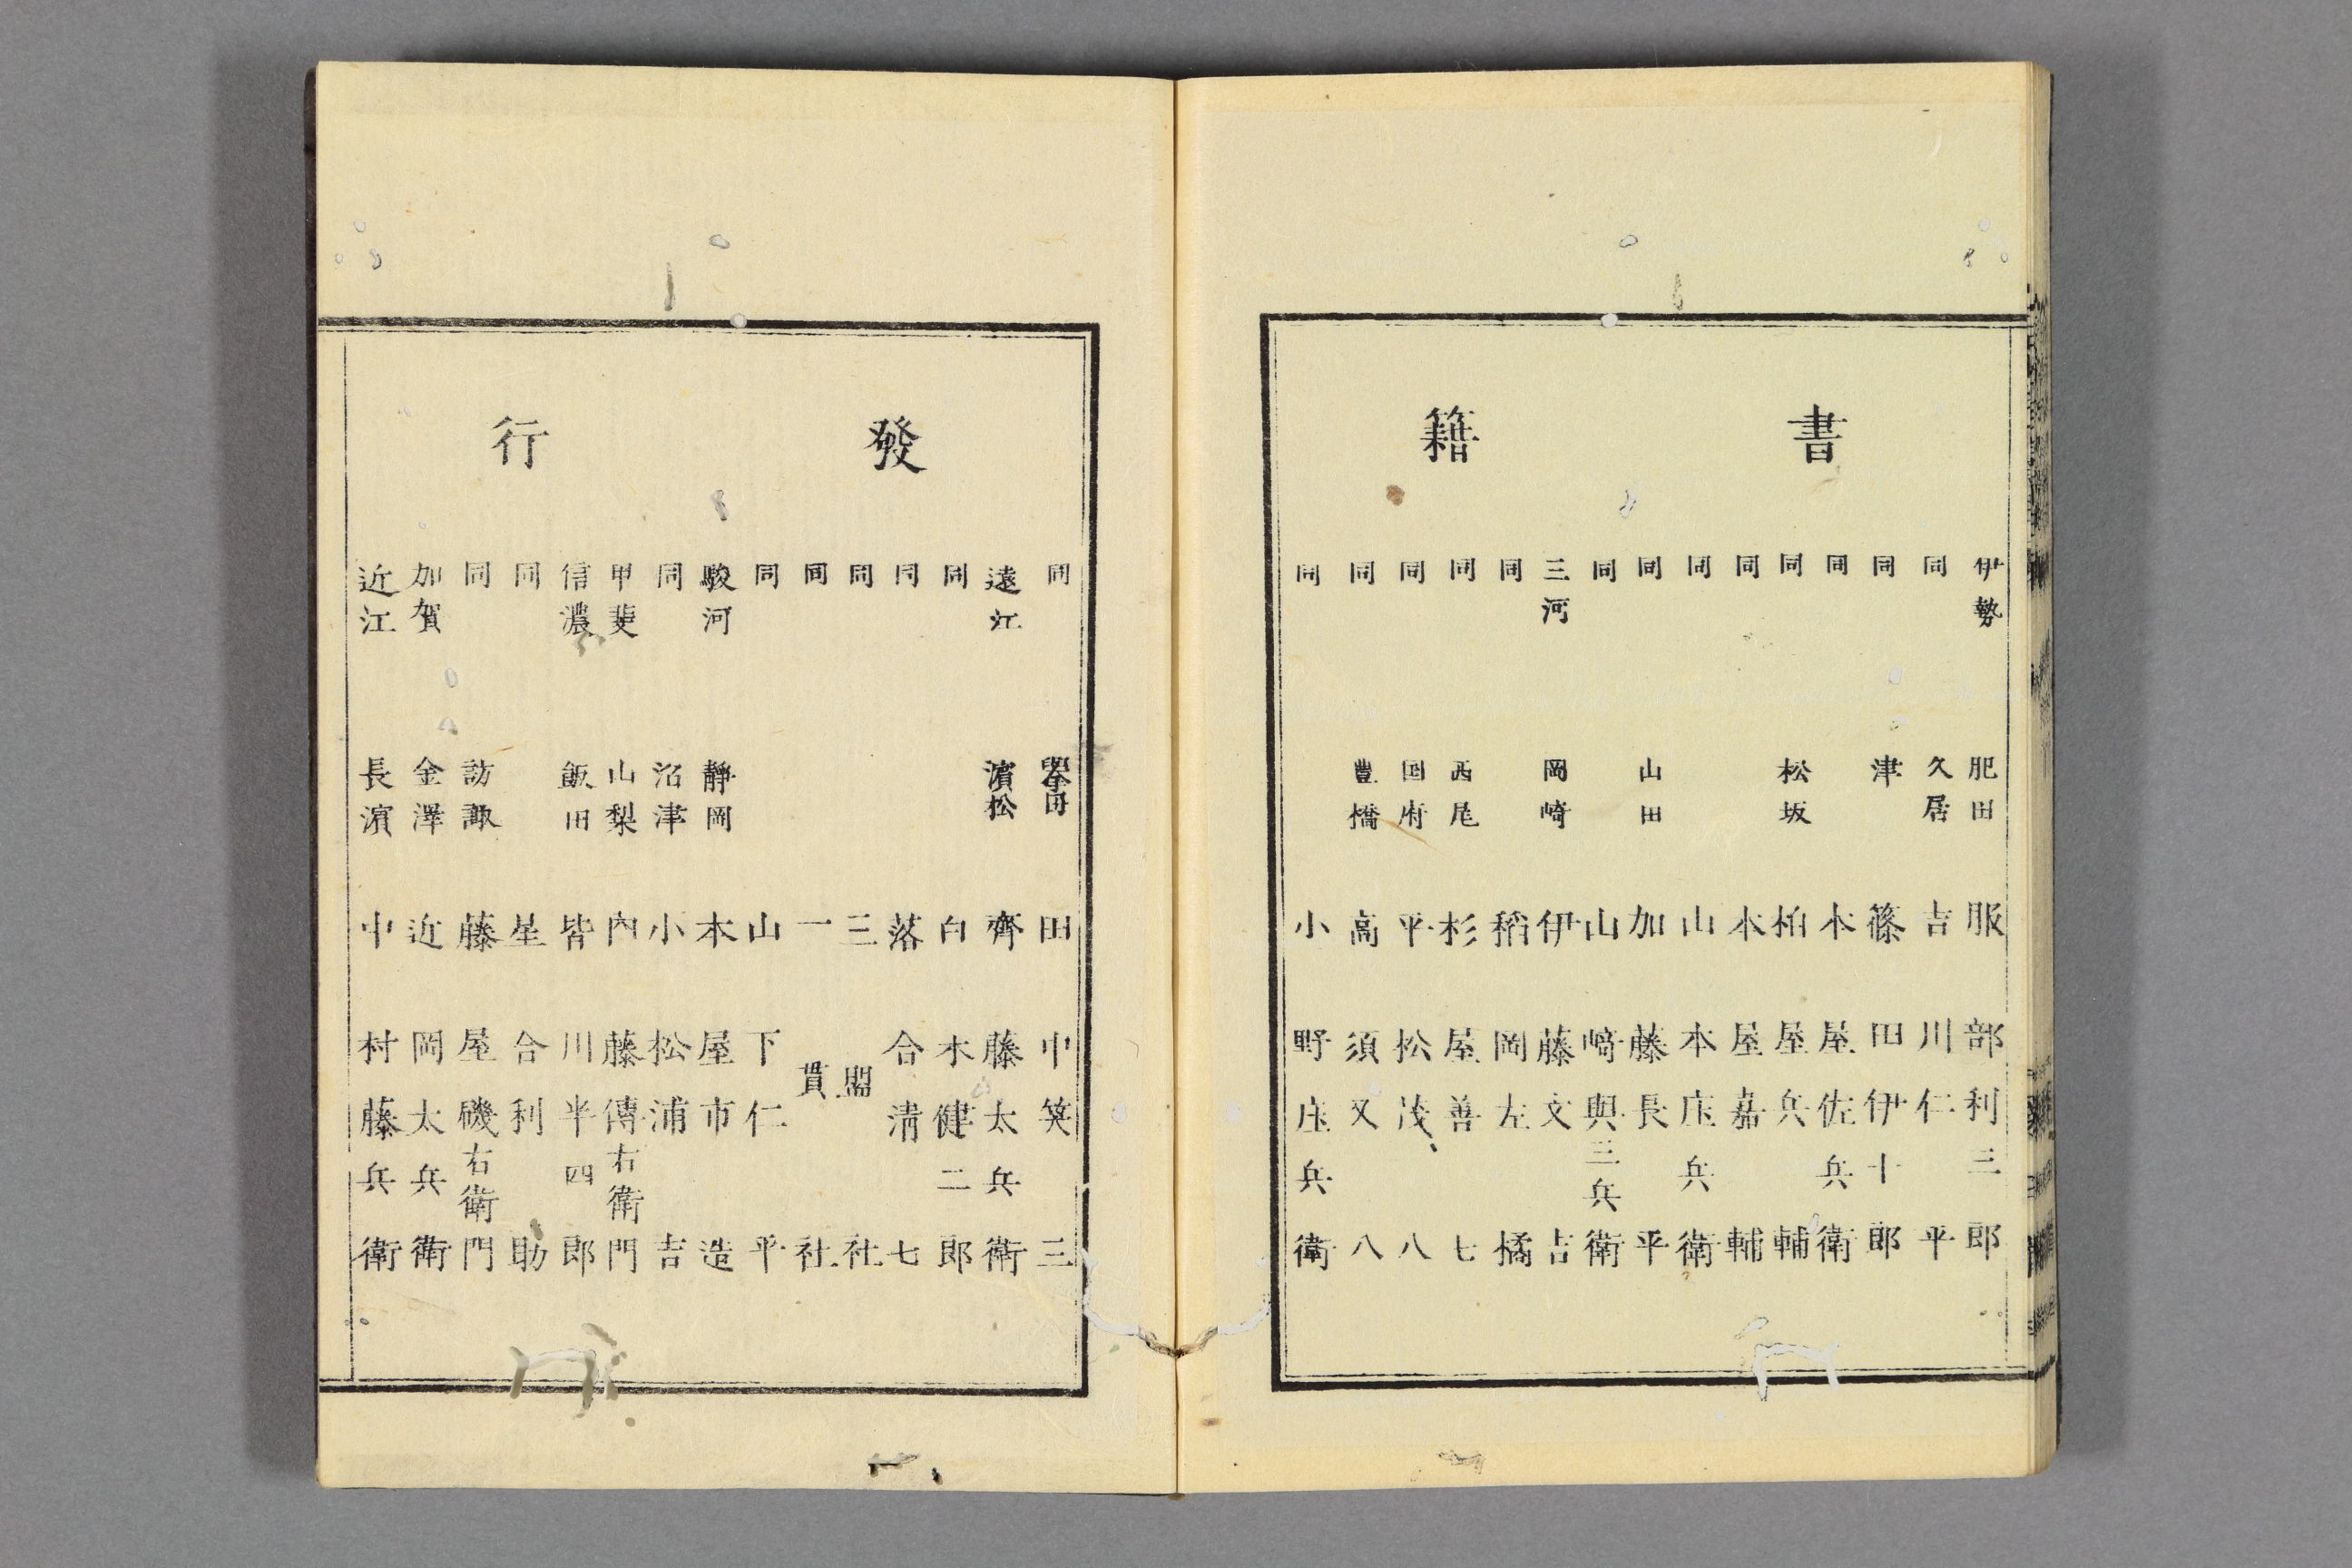 書籍
伊勢 肥田 服部利三郎
同 久居 吉川仁平
同 津 篠田伊十郎
同 木屋佐兵衛
同 松坂 柏屋兵輔
同 本屋嘉輔
同 山本庄兵衛
同 山田 加藤長平
同 山﨑與三兵衛
三河 岡崎 伊藤文吉
同 稻岡左橘
同 西尾 杉屋善七
同 国府 平松茂八
同 豊橋 高須又八
同 小野庄兵衛
發行
同 田中箕三
遠江 濱松 齊藤太兵衛
同 白木健二郎
同 落合淸七
同 三盟社
同 一貫社
同 山下仁平
駿河 靜岡 本屋市造
同 沼津 小松浦吉
甲斐 山梨 内藤傳右衛門
信濃 飯田 皆川半四郎
同 星合利助
同 訪諏 藤屋磯右衛門
加賀 金澤 近岡太兵衛
近江 長濱 中村藤兵衛